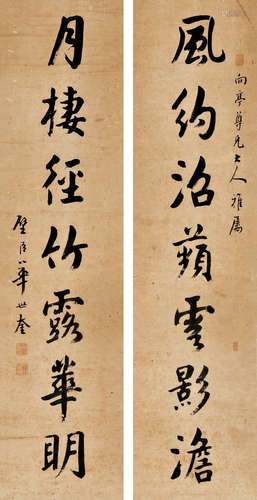 向亭尊兄大人雅屬
風約沼蘋雲影澹
月棲徑竹露華明
璧臣華世奎